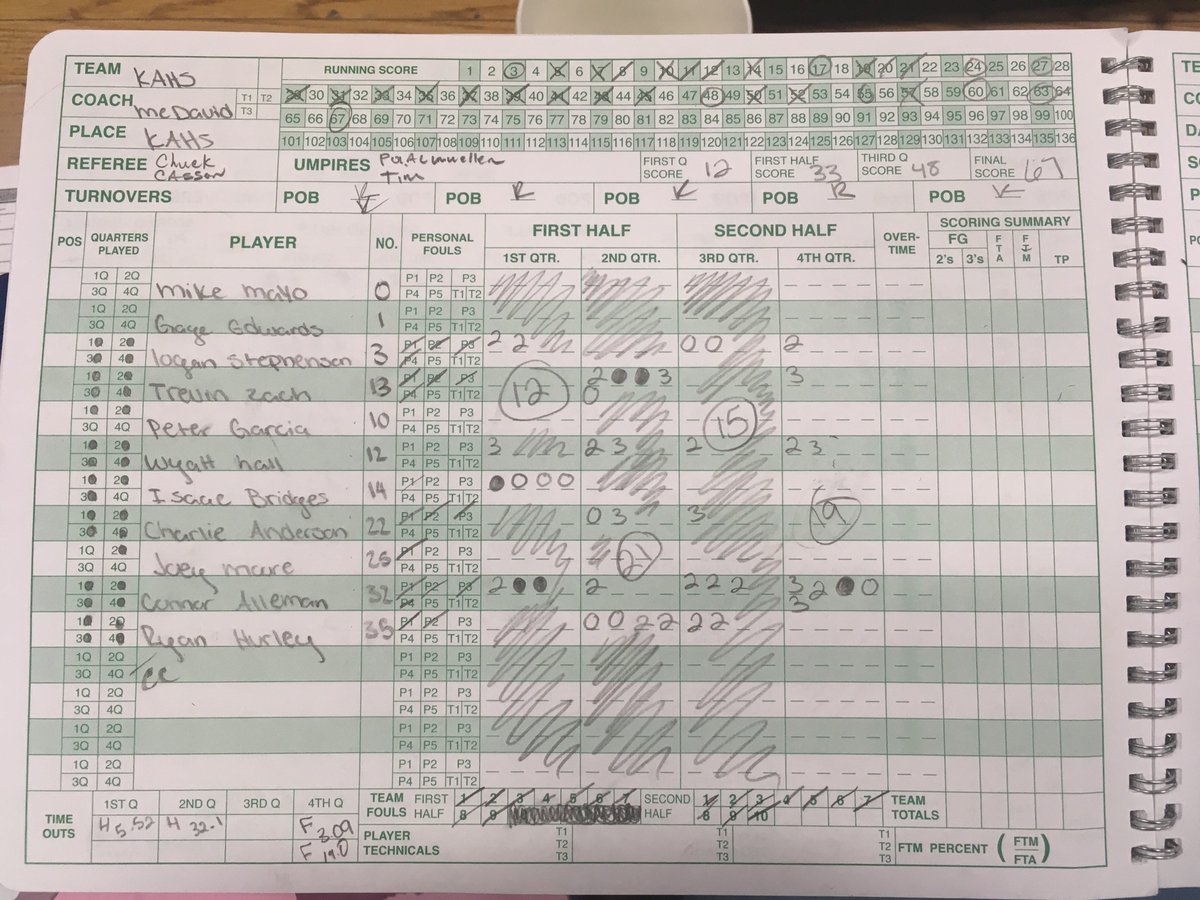 TEAM KAHS
RUNNING SCORE 1 2 3 4 5 6 7 8 9 10 11 12 13 14 15 16 17 18 19 20 21 22 23 24 25 26 27 28
COACH McDavid T1 T2 T3
29 30 31 32 33 34 35 36 37 38 39 40 41 42 43 44 45 46 47 48 49 50 51 52 53 54 55 56 57 58 59 60 61 62 63 64
65 66 67 68 69 70 71 72 73 74 75 76 77 78 79 80 81 82 83 84 85 86 87 88 89 90 91 92 93 94 95 96 97 98 99 100
PLACE KAHS
101 102 103 104 105 106 107 108 109 110 111 112 113 114 115 116 117 118 119 120 121 122 123 124 125 126 127 128 129 130 131 132 133 134 135 136
REFEREE Chuck Casson
UMPIRES Tim
FIRST Q SCORE 12 FIRST HALF SCORE 33 THIRD Q SCORE 48 FINAL SCORE 67
TURNOVERS POB POB POB POB POB
POS QUARTERS PLAYED PLAYER NO. PERSONAL FOULS FIRST HALF SECOND HALF OVER-TIME SCORING SUMMARY
1ST QTR. 2ND QTR. 3RD QTR. 4TH QTR. FG 2's 3's FTA FTM TP
1Q 2Q 3Q 4Q Mike Mayo 0 P1 P2 P3 P4 P5 T1 T2
1Q 2Q 3Q 4Q Gage Edwards 1 P1 P2 P3 P4 P5 T1 T2
1Q 2Q 3Q 4Q logan Stephenson 3 P1 P2 P3 P4 P5 T1 T2 2 2 0 0 2
1Q 2Q 3Q 4Q Trevin Zach 13 P1 P2 P3 P4 P5 T1 T2 12 2 3 0 3
1Q 2Q 3Q 4Q Peter Garcia 10 P1 P2 P3 P4 P5 T1 T2 15
1Q 2Q 3Q 4Q Wyatt hall 12 P1 P2 P3 P4 P5 T1 T2 3 2 3 2 2 3
1Q 2Q 3Q 4Q Isaac Bridges 14 P1 P2 P3 P4 P5 T1 T2 0 0 0
1Q 2Q 3Q 4Q Charlie Anderson 22 P1 P2 P3 P4 P5 T1 T2 0 3 3 19
1Q 2Q 3Q 4Q Joey moore 25 P1 P2 P3 P4 P5 T1 T2 21
1Q 2Q 3Q 4Q Connor Alleman 32 P1 P2 P3 P4 P5 T1 T2 2 2 2 2 2 3 2 0 3
1Q 2Q 3Q 4Q Ryan Hurley 35 P1 P2 P3 P4 P5 T1 T2 0 0 2 2 2 2
1Q 2Q 3Q 4Q P1 P2 P3 P4 P5 T1 T2
1Q 2Q 3Q 4Q P1 P2 P3 P4 P5 T1 T2
1Q 2Q 3Q 4Q P1 P2 P3 P4 P5 T1 T2
1Q 2Q 3Q 4Q P1 P2 P3 P4 P5 T1 T2
TIME OUTS 1ST Q 2ND Q 3RD Q 4TH Q
H 5.52 H 32.1 F 3.09
F 19.0
TEAM FOULS FIRST HALF 1 2 3 4 5 6 7 8 9 SECOND HALF 1 2 3 4 5 6 7 8 9 10 TEAM TOTALS
PLAYER TECHNICALS T1 T2 T3 T1 T2 T3 T1 T2 T3 FTM PERCENT (FTM/FTA)